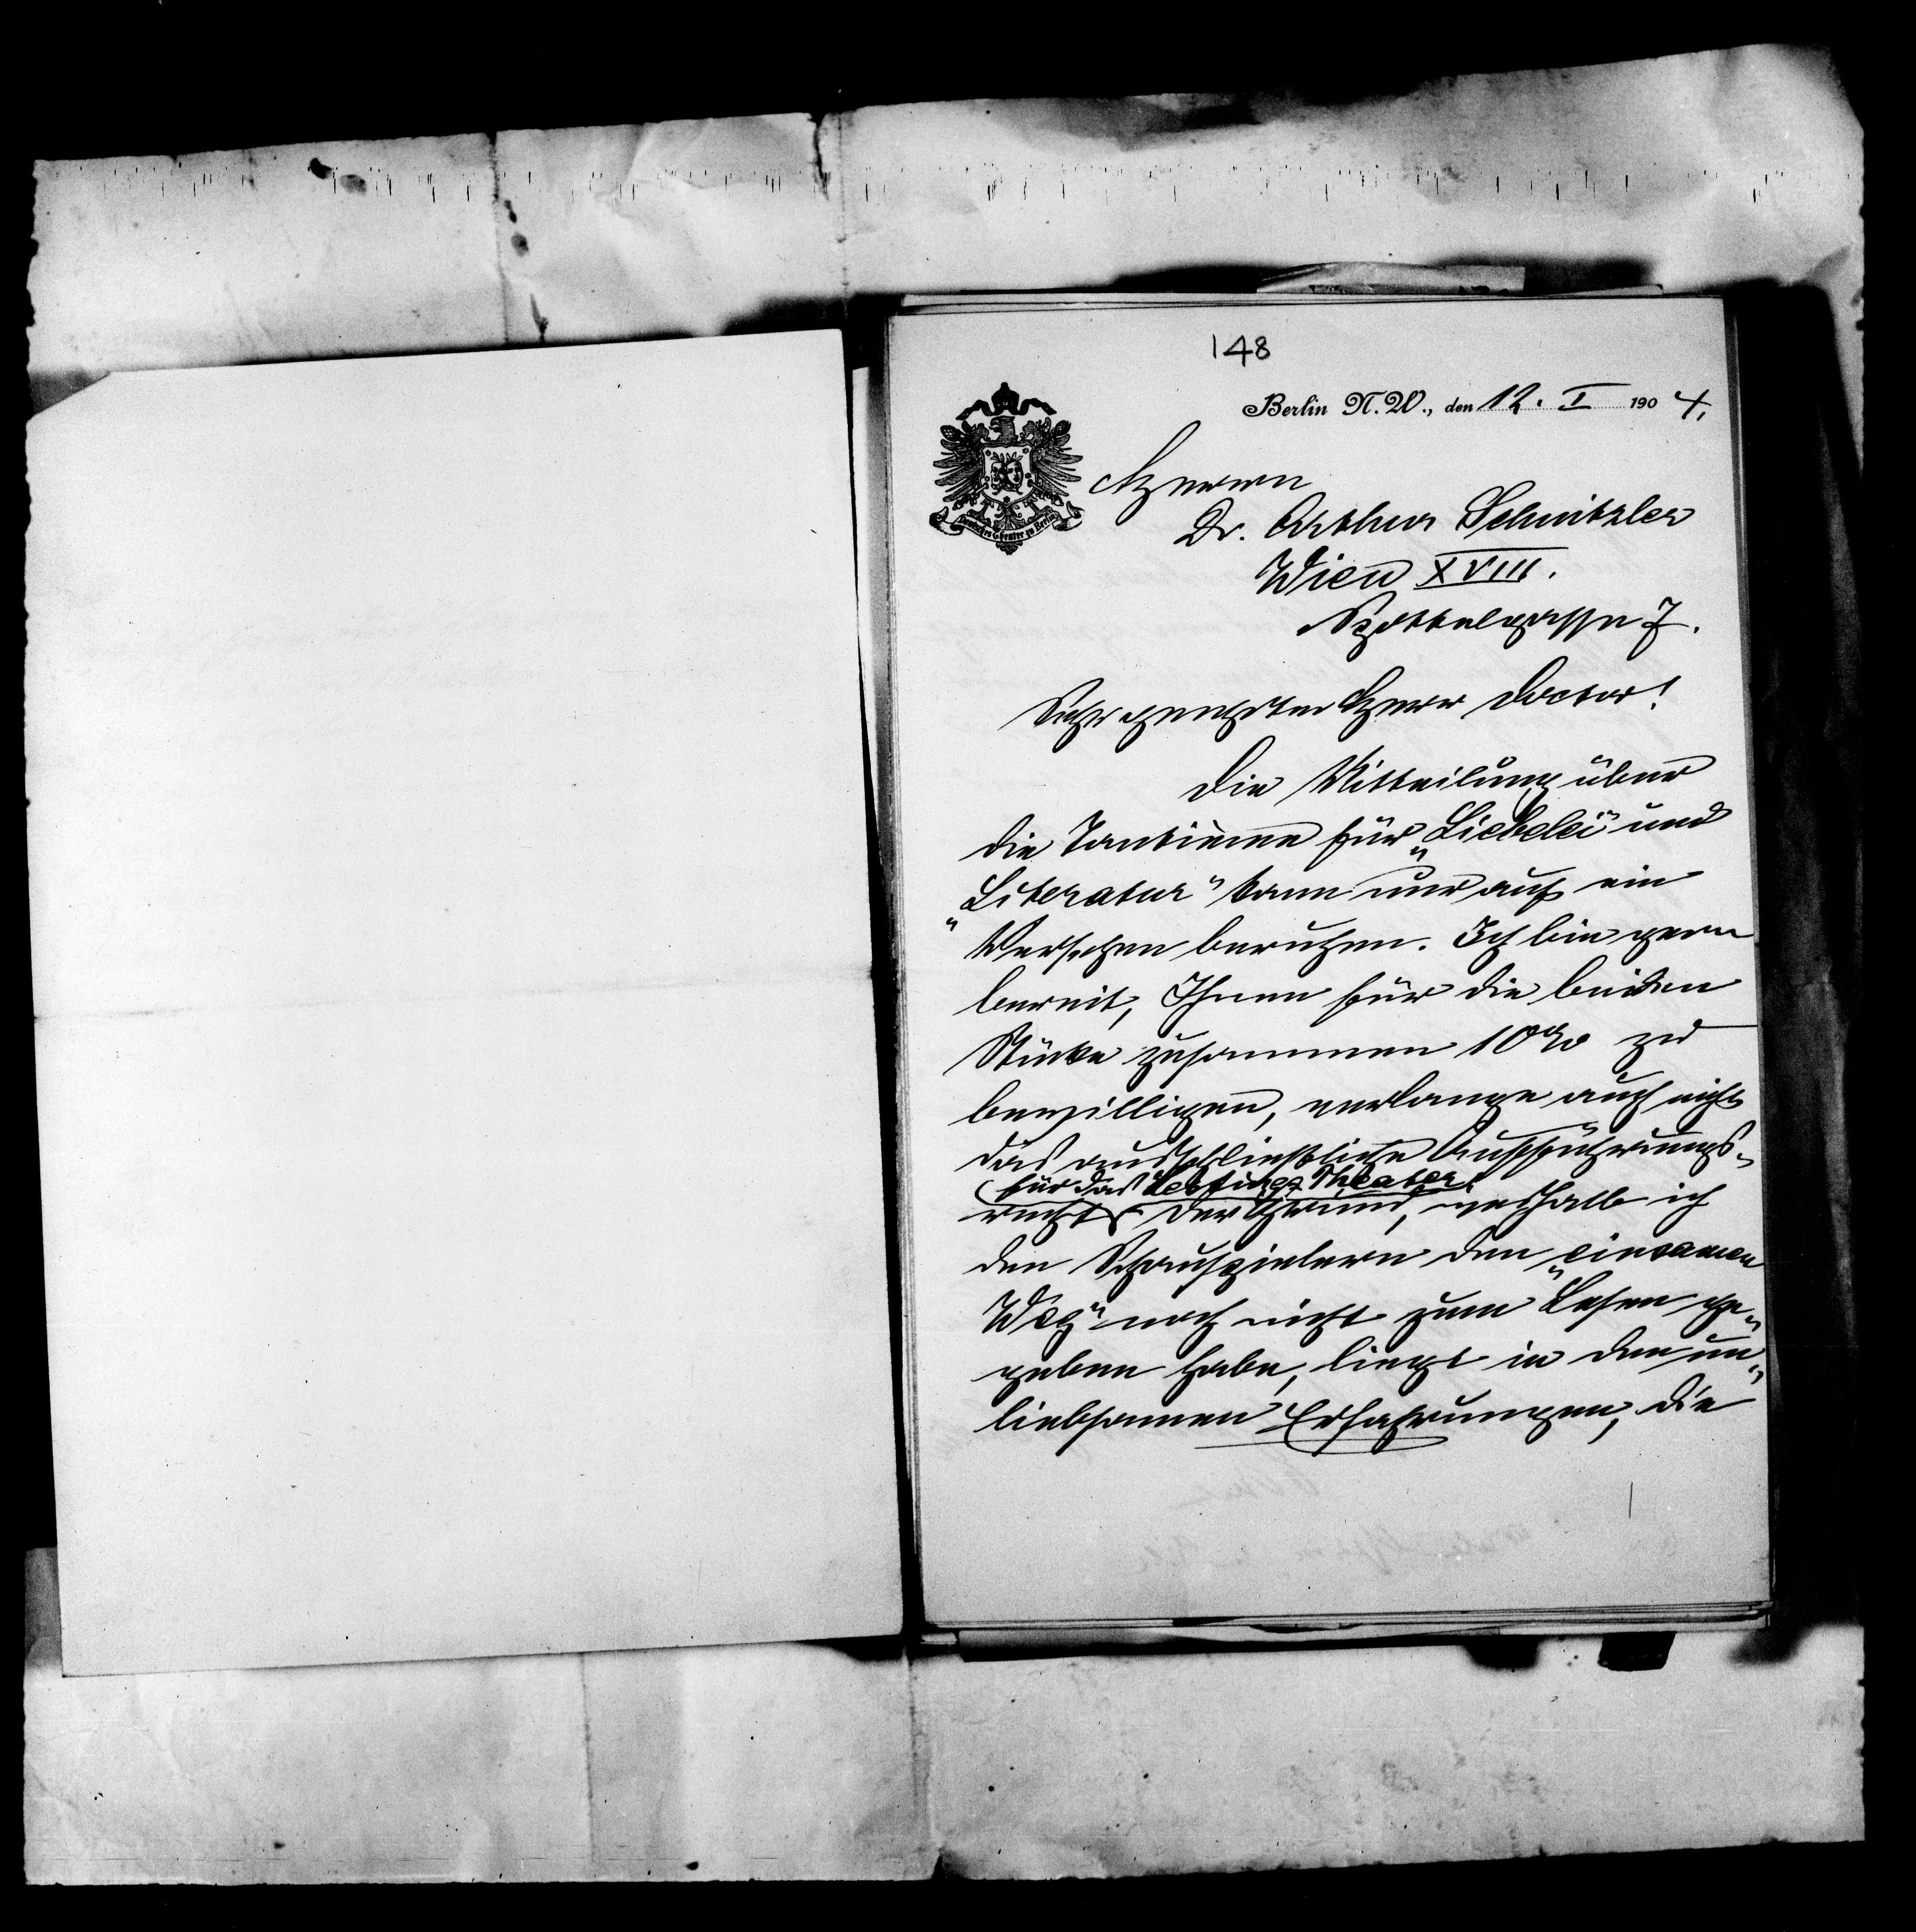 148
Berlin N.W., den 12. I 1904.
Deutsches Theater zu Berlin
Herrn
Dr. Arthur Schnitzler
Wien XVIII.
Spöttelgasse 7.
Sehr geehrter Herr Doctor!
Die Mitteilung über
die Tantième für „Liebelei“ und
„Literatur“ kann nur auf ein
Versehen beruhen. Ich bin gern
bereit, Ihnen für die beiden
Stücke zusammen 10% zu
bewilligen, verlange auch nicht
das ausschließliche Aufführungs-
für das Lessing-Theater.
recht Der Grund, weshalb ich
den Schauspielern den „einsamen
Weg“ noch nicht zum Lesen ge-
geben habe, liegt in den un-
liebsamen Erfahrungen, die